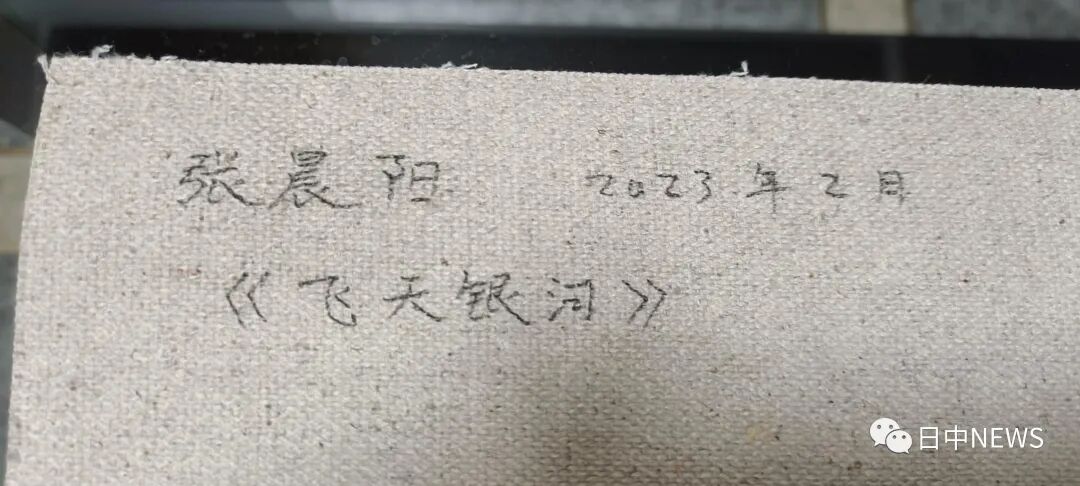 张晨阳 2023.年2月
《飞天银河》
日中NEWS